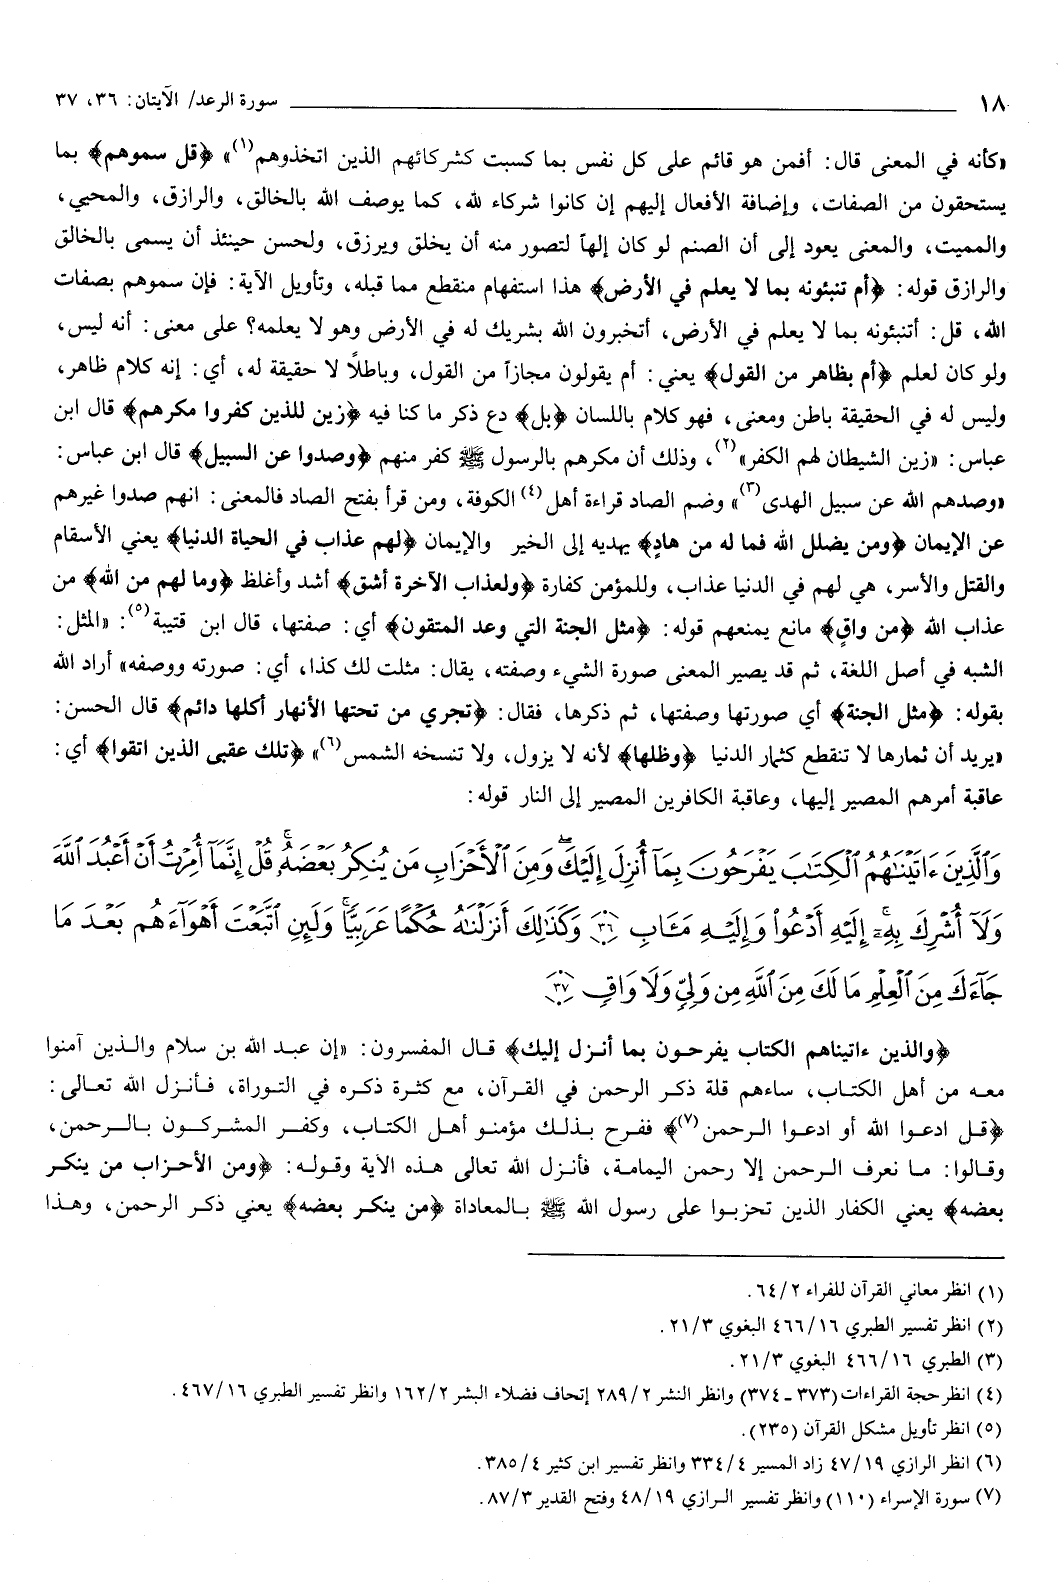 ١٨ سورة الرعد/ الآيتان: ٣٦، ٣٧
«كأنه في المعنى قال: أفمن هو قائم على كل نفس بما كسبت كشركائهم الذين اتخذوهم(١)» ﴿قل سموهم﴾ بما
يستحقون من الصفات، وإضافة الأفعال إليهم إن كانوا شركاء لله، كما يوصف الله بالخالق، والرازق، والمحيي،
والمميت، والمعنى يعود إلى أن الصنم لو كان إلهاً لتصور منه أن يخلق ويرزق، ولحسن حينئذ أن يسمى بالخالق
والرازق قوله: ﴿أم تنبئونه بما لا يعلم في الأرض﴾ هذا استفهام منقطع مما قبله، وتأويل الآية: فإن سموهم بصفات
الله، قل: أتنبئونه بما لا يعلم في الأرض، أتخبرون الله بشريك له في الأرض وهو لا يعلمه؟ على معنى: أنه ليس،
ولو كان لعلم ﴿أم بظاهر من القول﴾ يعني: أم يقولون مجازاً من القول، وباطلًا لا حقيقة له، أي: إنه كلام ظاهر،
وليس له في الحقيقة باطن ومعنى، فهو كلام باللسان ﴿بل﴾ دع ذكر ما كنا فيه ﴿زين للذين كفروا مكرهم﴾ قال ابن
عباس: «زين الشيطان لهم الكفر»(٢)، وذلك أن مكرهم بالرسول ﷺ كفر منهم ﴿وصدوا عن السبيل﴾ قال ابن عباس:
«وصدهم الله عن سبيل الهدى(٣)» وضم الصاد قراءة أهل(٤) الكوفة، ومن قرأ بفتح الصاد فالمعنى: انهم صدوا غيرهم
عن الإيمان ﴿ومن يضلل الله فما له من هادٍ﴾ يهديه إلى الخير والإيمان ﴿لهم عذاب في الحياة الدنيا﴾ يعني الأسقام
والقتل والأسر، هي لهم في الدنيا عذاب، وللمؤمن كفارة ﴿ولعذاب الآخرة أشق﴾ أشد وأغلظ ﴿وما لهم من الله﴾ من
عذاب الله ﴿من واقٍ﴾ مانع يمنعهم قوله: ﴿مثل الجنة التي وعد المتقون﴾ أي: صفتها، قال ابن قتيبة(٥): «المثل:
الشبه في أصل اللغة، ثم قد يصير المعنى صورة الشيء وصفته، يقال: مثلت لك كذا، أي: صورته ووصفه» أراد الله
بقوله: ﴿مثل الجنة﴾ أي صورتها وصفتها، ثم ذكرها، فقال: ﴿تجري من تحتها الأنهار أكلها دائم﴾ قال الحسن:
«يريد أن ثمارها لا تنقطع كثمار الدنيا ﴿وظلها﴾ لأنه لا يزول، ولا تنسخه الشمس(٦)» ﴿تلك عقبى الذين اتقوا﴾ أي:
عاقبة أمرهم المصير إليها، وعاقبة الكافرين المصير إلى النار قوله:
وَٱلَّذِينَ ءَاتَيْنَٰهُمُ ٱلْكِتَٰبَ يَفْرَحُونَ بِمَآ أُنزِلَ إِلَيْكَ ۖ وَمِنَ ٱلْأَحْزَابِ مَن يُنكِرُ بَعْضَهُۥ ۚ قُلْ إِنَّمَآ أُمِرْتُ أَنْ أَعْبُدَ ٱللَّهَ
وَلَآ أُشْرِكَ بِهِۦٓ ۚ إِلَيْهِ أَدْعُوا۟ وَإِلَيْهِ مَـَٔابِ ٣٦ وَكَذَٰلِكَ أَنزَلْنَٰهُ حُكْمًا عَرَبِيًّا ۚ وَلَئِنِ ٱتَّبَعْتَ أَهْوَآءَهُم بَعْدَ مَا
جَآءَكَ مِنَ ٱلْعِلْمِ مَا لَكَ مِنَ ٱللَّهِ مِن وَلِىٍّ وَلَا وَاقٍ ٣٧
﴿والذين ءاتيناهم الكتاب يفرحون بما أنزل إليك﴾ قال المفسرون: «إن عبد الله بن سلام والذين آمنوا
معه من أهل الكتاب، ساءهم قلة ذكر الرحمن في القرآن، مع كثرة ذكره في التوراة، فأنزل الله تعالى:
﴿قل ادعوا الله أو ادعوا الرحمن(٧)﴾ ففرح بذلك مؤمنو أهل الكتاب، وكفر المشركون بالرحمن،
وقالوا: ما نعرف الرحمن إلا رحمن اليمامة، فأنزل الله تعالى هذه الآية وقوله: ﴿ومن الأحزاب من ينكر
بعضه﴾ يعني الكفار الذين تحزبوا على رسول الله ﷺ بالمعاداة ﴿من ينكر بعضه﴾ يعني ذكر الرحمن، وهذا
(١) انظر معاني القرآن للفراء ٢/ ٦٤.
(٢) انظر تفسير الطبري ١٦/ ٤٦٦ البغوي ٣/ ٢١.
(٣) الطبري ١٦/ ٤٦٦ البغوي ٣/ ٢١.
(٤) انظر حجة القراءات (٣٧٣ ـ ٣٧٤) وانظر النشر ٢/ ٢٨٩ إتحاف فضلاء البشر ٢/ ١٦٢ وانظر تفسير الطبري ١٦/ ٤٦٧.
(٥) انظر تأويل مشكل القرآن (٢٣٥).
(٦) انظر الرازي ١٩/ ٤٧ زاد المسير ٤/ ٣٣٤ وانظر تفسير ابن كثير ٤/ ٣٨٥.
(٧) سورة الإسراء (١١٠) وانظر تفسير الرازي ١٩/ ٤٨ وفتح القدير ٣/ ٨٧.